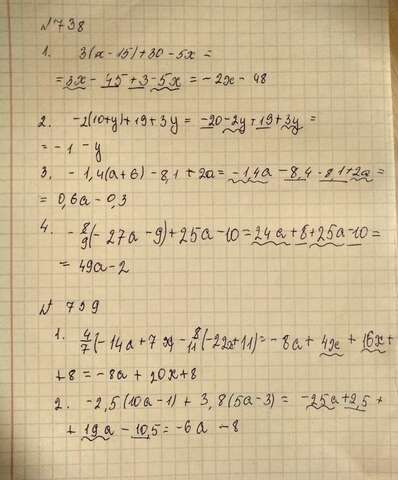 №738
1. 3(x-15)+30-5x=
=3x-45+3-5x=-2x-48
2. -2(10+y)+19+3y=-20-2y+19+3y=
=-1-y
3. -1,4(a+6)-8,1+2a=-1,4a-8,4-8,1+2a=
=0,6a-0,3
4. -8/9(-27a-9)+25a-10=24a+8+25a-10=
=49a-2
№739
1. 4/7(-14a+7x)-8/11(-22x+11)=-8a+4x+16x+
+8=-8a+20x+8
2. -2,5(10a-1)+3,8(5a-3)=-25a+2,5+
+19a-10,5=-6a-8